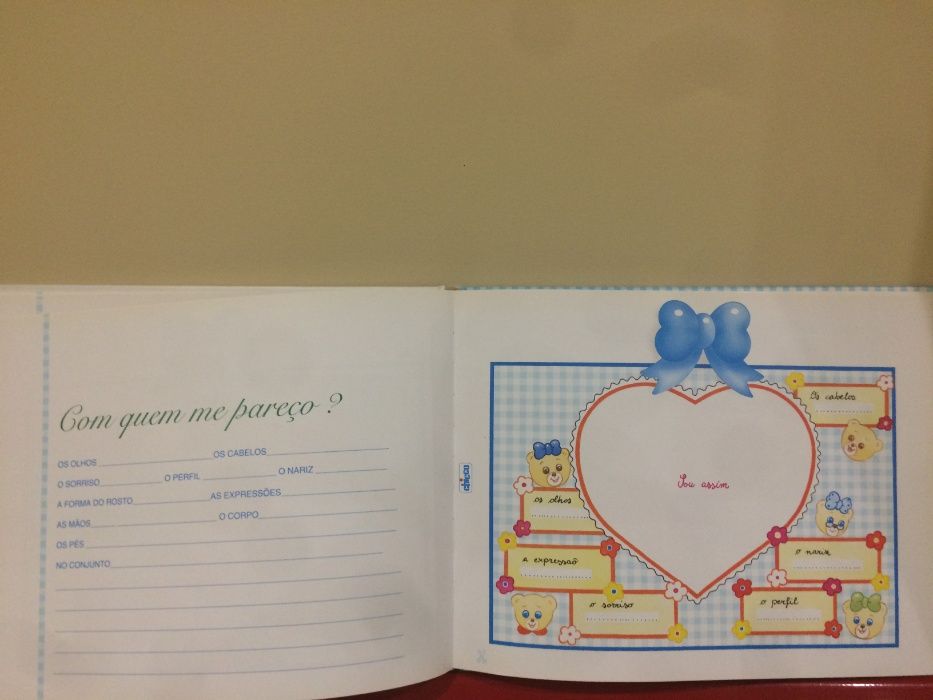 Com quem me pareço ?
OS OLHOS OS CABELOS
O SORRISO O PERFIL O NARIZ
A FORMA DO ROSTO AS EXPRESSÕES
AS MÃOS O CORPO
OS PÉS
NO CONJUNTO
chicco
Os cabelos
Sou assim
os olhos
a expressão
o nariz
o sorriso
o perfil